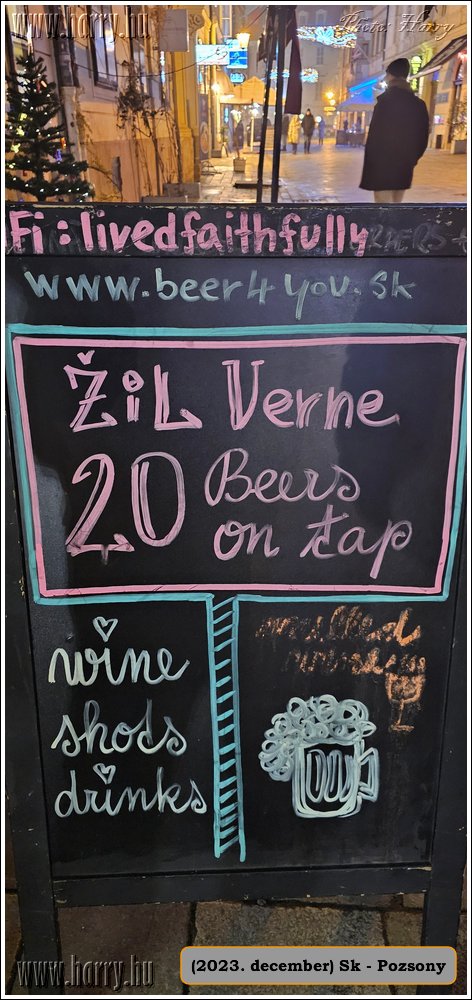 www.harry.hu
Photo: Harry
Fi : livedfaithfully
www.beer4you.sk
ŽiL Verne
20 Beers
on tap
wine
mulled
shots
drinks
www.harry.hu
(2023. december) Sk - Pozsony